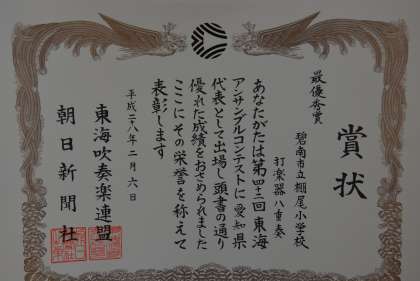 賞状
最優秀賞
碧南市立棚尾小学校
打楽器八重奏
あなたがたは第四十二回東海
アンサンブルコンテストに愛知県
代表として出場し頭書の通り
優れた成績をおさめられました
ここにその栄誉を称えて
表彰します
平成二八年二月六日
東海吹奏楽連盟
朝日新聞社